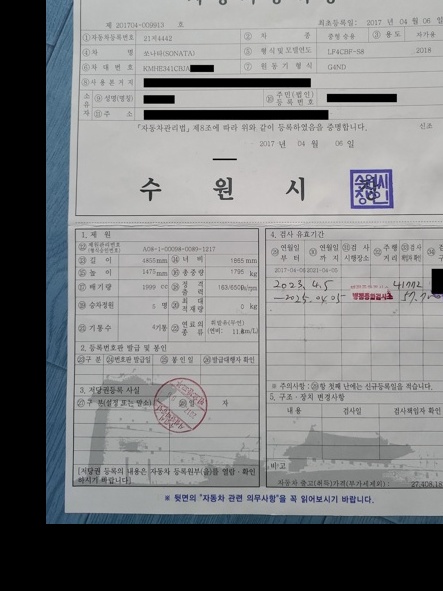 제 201704-009813 호
최초등록일: 2017 년 04 월 06 일
①자동차등록번호 21저4442 ② 차 종 중형 승용 ③ 용도 자가용
④ 차 명 쏘나타(SONATA) ⑤ 형식 및 모델연도 LF4CBF-S8 2018
⑥ 차 대 번 호 KMHE341CBJA ⑦ 원 동 기 형 식 G4ND
⑧ 사 용 본 거 지
소유자 ⑨ 성명(명칭) ⑩ 주민(법인)등록번호
⑪ 주 소
「자동차관리법」 제8조에 따라 위와 같이 등록하였음을 증명합니다. 신조
2017 년 04 월 06 일
수 원 시
1. 제 원
⑫ 제원관리번호 (형식승인번호) A08-1-00094-0089-1217
⑬ 길 이 4855 mm ⑭ 너 비 1865 mm
⑮ 높 이 1475 mm ⑯ 총중량 1795 kg
⑰ 배기량 1999 cc ⑱ 정격출력
⑲ 승차정원 명 ⑳ 최대적재량 0 kg
㉑ 기통수 4기통 ㉒ 연료의 종류 휘발유(무연)
2. 등록번호판 발급 및 봉인
㉓구 분 ㉔번호판 발급일 ㉕ 봉 인 일 ㉖발급대행자 확인
3. 저당권등록 사실
㉗구 분(설정 또는 말소) 자
[저당권 등록의 내용은 자동차 등록원부(을)를 열람ㆍ확인
하시기 바랍니다]
4. 검사 유효기간
㉙ 연월일부터 ㉚ 연월일까지 ㉛검 사 시행장소 ㉜ 주행거리 ㉝ 검사
2017-04-06 2021-04-05
2023. 4. 5 41772
2025. 04. 05
※ 주의사항: ㉙항 첫째 난에는 신규등록일을 적습니다.
5. 구조ㆍ장치 변경사항
내 용 검사일 검사책임자 확인
비고
자동차 출고(취득)가격(부가세제외):
※ 뒷면의 "자동차 관련 의무사항"을 꼭 읽어보시기 바랍니다.